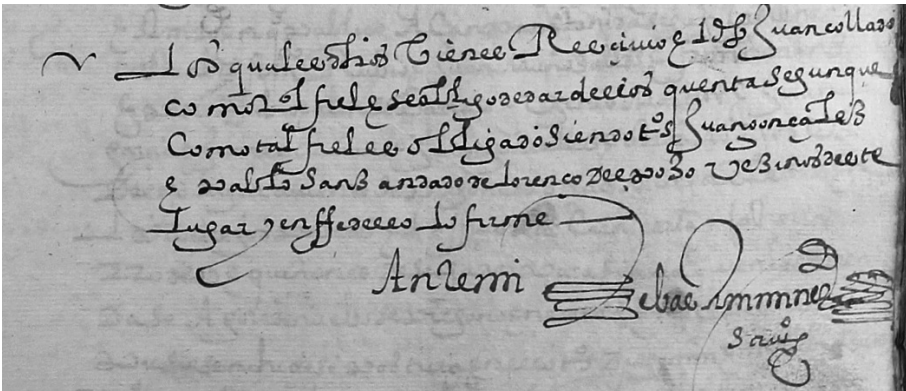 Los quales dhos bienes Recivio el dho Juan collado
como tal fiel e se obligo de dar dellos quenta segun que
Como tal fiel es obligado siendo tos Juan gonçales
e pablo sanz de lorenço vezinos deste
lugar y en ffe dello lo firme
Ante mi
ximenez
scriuo